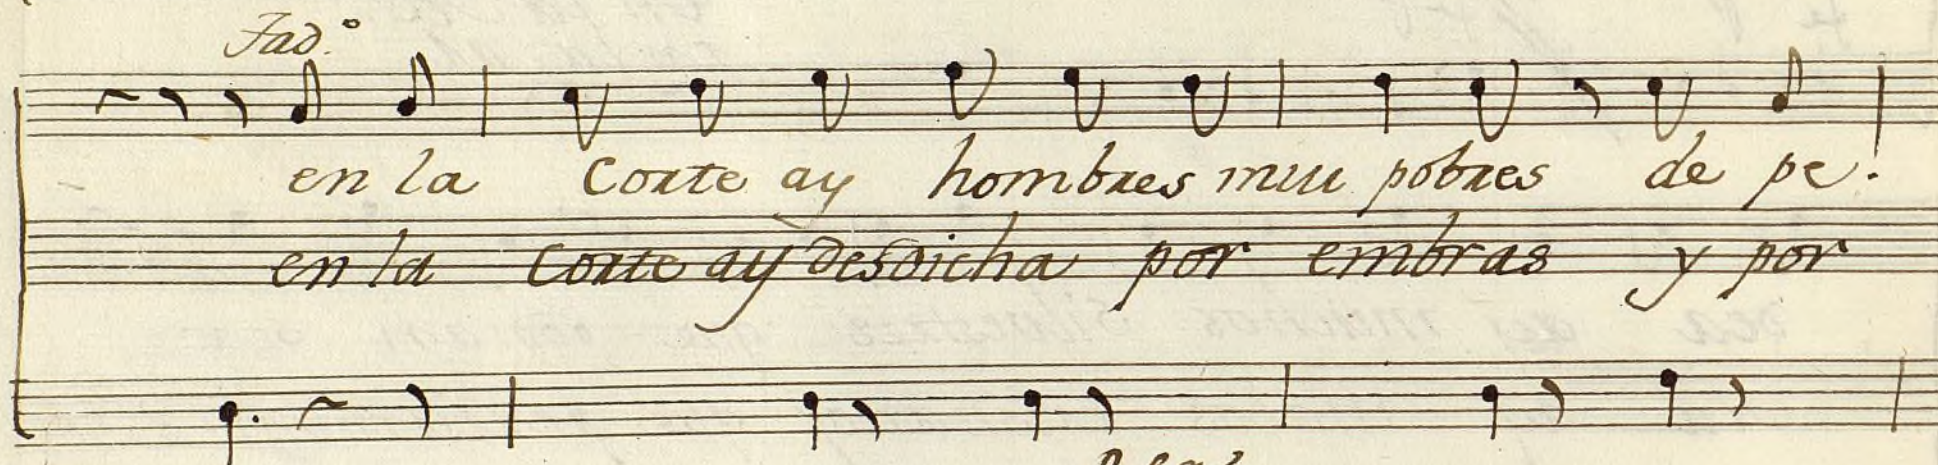 Tad.°
en la Corte ay hombres muu pobres de pe.
en la Corte ay desdicha por embras y por